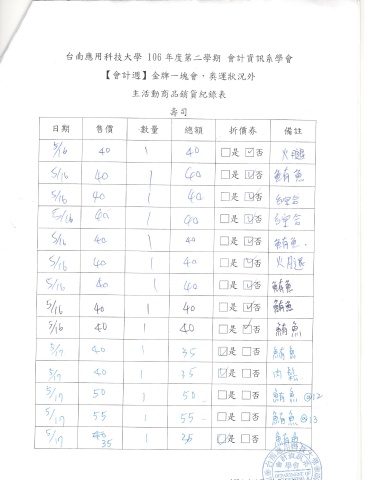 台南應用科技大學 106 年度第二學期 會計資訊系學會
【會計週】金牌一塊會，奧運狀況外
主活動商品銷貨紀錄表
壽司
日期 售價 數量 總額 折價券 備註
5/16 40 1 40 □是 ☑否 火腿
5/16 40 1 40 □是 ☑否 鮪魚
5/16 40 1 40 □是 ☑否 綜合
5/16 40 1 40 □是 ☑否 綜合
5/16 40 1 40 □是 ☑否 鮪魚
5/16 40 1 40 □是 ☑否 火腿
5/16 40 1 40 □是 ☑否 鮪魚
5/16 40 1 40 □是 ☑否 鮪魚
5/16 40 1 40 □是 ☑否 鮪魚
5/17 40 1 35 ☑是 □否 鮪魚
5/17 40 1 35 ☑是 □否 肉鬆
5/17 50 1 50 □是 □否 鮪魚 @12
5/17 55 1 55 □是 □否 鮪魚 @13
5/17 35 1 35 ☑是 □否 鮪魚